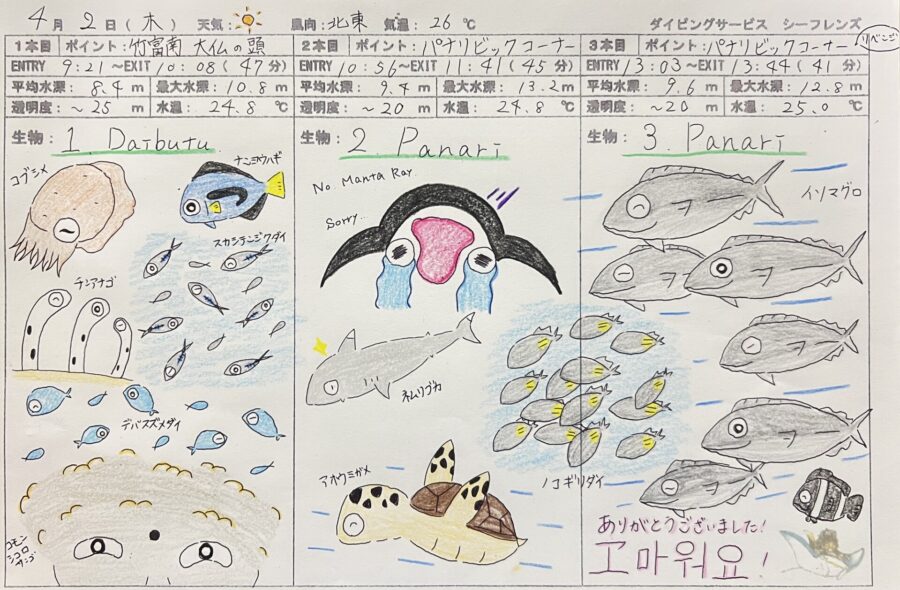 4月2日(木) 天気: 風向:北東 気温:26℃ ダイビングサービス シーフレンズ
りべこご
1本目 ポイント:竹富南 大仏の頭
ENTRY 9:21~EXIT 10:08(47分)
平均水深: 8.4 m 最大水深: 10.8 m
透明度: ~25 m 水温: 24.8 ℃
生物: 1. Daibutu
コブシメ
ナンヨウハギ
スカシテンジクダイ
チンアナゴ
デバスズメダイ
コモン
シコロ
サンゴ
2本目 ポイント:パナリビックコーナー
ENTRY 10:56~EXIT 11:41(45分)
平均水深: 9.4 m 最大水深: 13.2 m
透明度: ~20 m 水温: 24.8 ℃
生物: 2 Panari
No Manta Ray.
Sorry..
ネムリブカ
アオウミガメ
ノコギリダイ
3本目 ポイント:パナリビックコーナー
ENTRY 13:03~EXIT 13:44(41分)
平均水深: 9.6 m 最大水深: 12.8 m
透明度: ~20 m 水温: 25.0 ℃
生物: 3. Panari
イソマグロ
ありがとうございました!
고마워요!